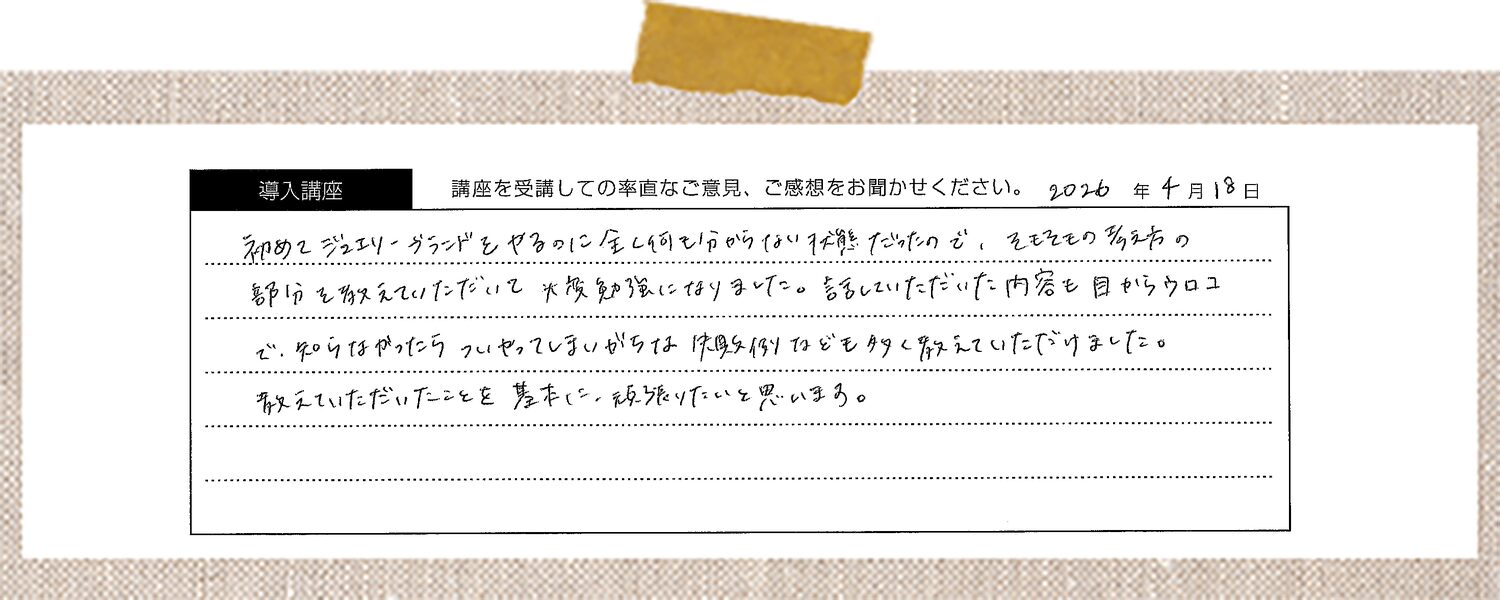 導入講座 講座を受講しての率直なご意見、ご感想をお聞かせください。 2026 年 4 月 18 日
初めてジュエリーブランドをやるのに全く何も分からない状態だったので、そもそもの考え方の
部分を教えていただいて大変勉強になりました。話していただいた内容も目からウロコ
で、知らなかったらついやってしまいがちな失敗例なども多く教えていただけました。
教えていただいたことを基本に、頑張りたいと思います。